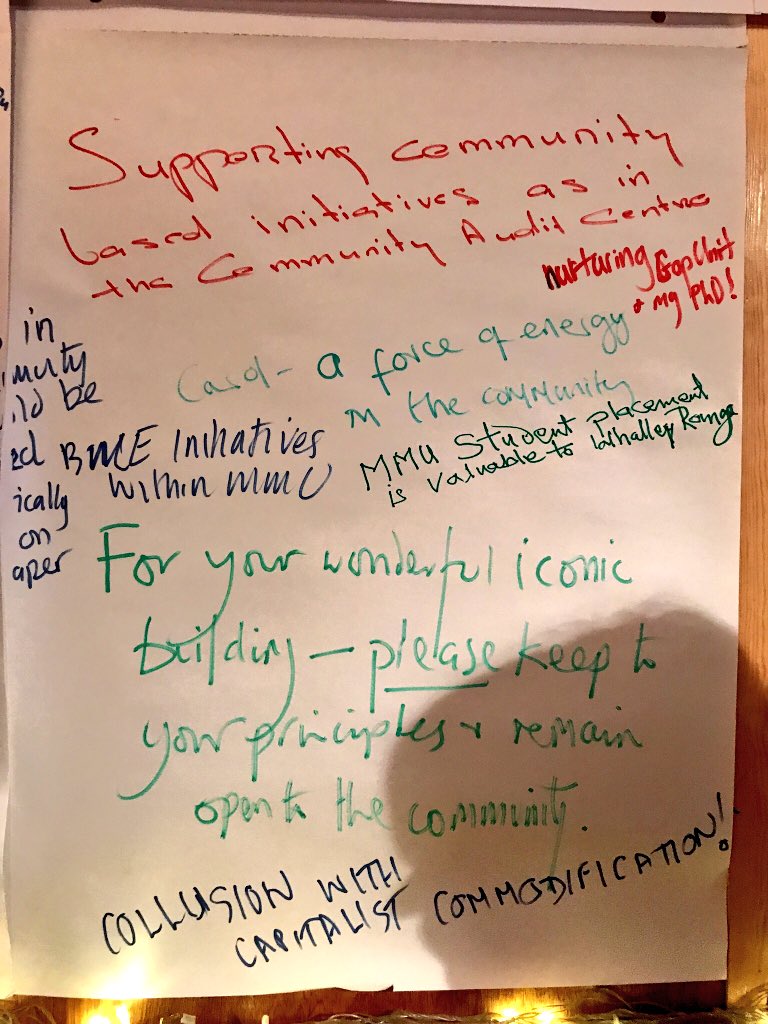 Supporting community
based initiatives as in
the Community Audit Centre
nurturing
+ my PhD!
a force of energy
in the community
in
BME Initiatives
within MMU
MMU Student placement
is valuable to Whalley Range
ically
on
aper
For your wonderful iconic
building – please keep to
your principles + remain
open to the community.
COLLUSION WITH
CAPITALIST COMMODIFICATION!